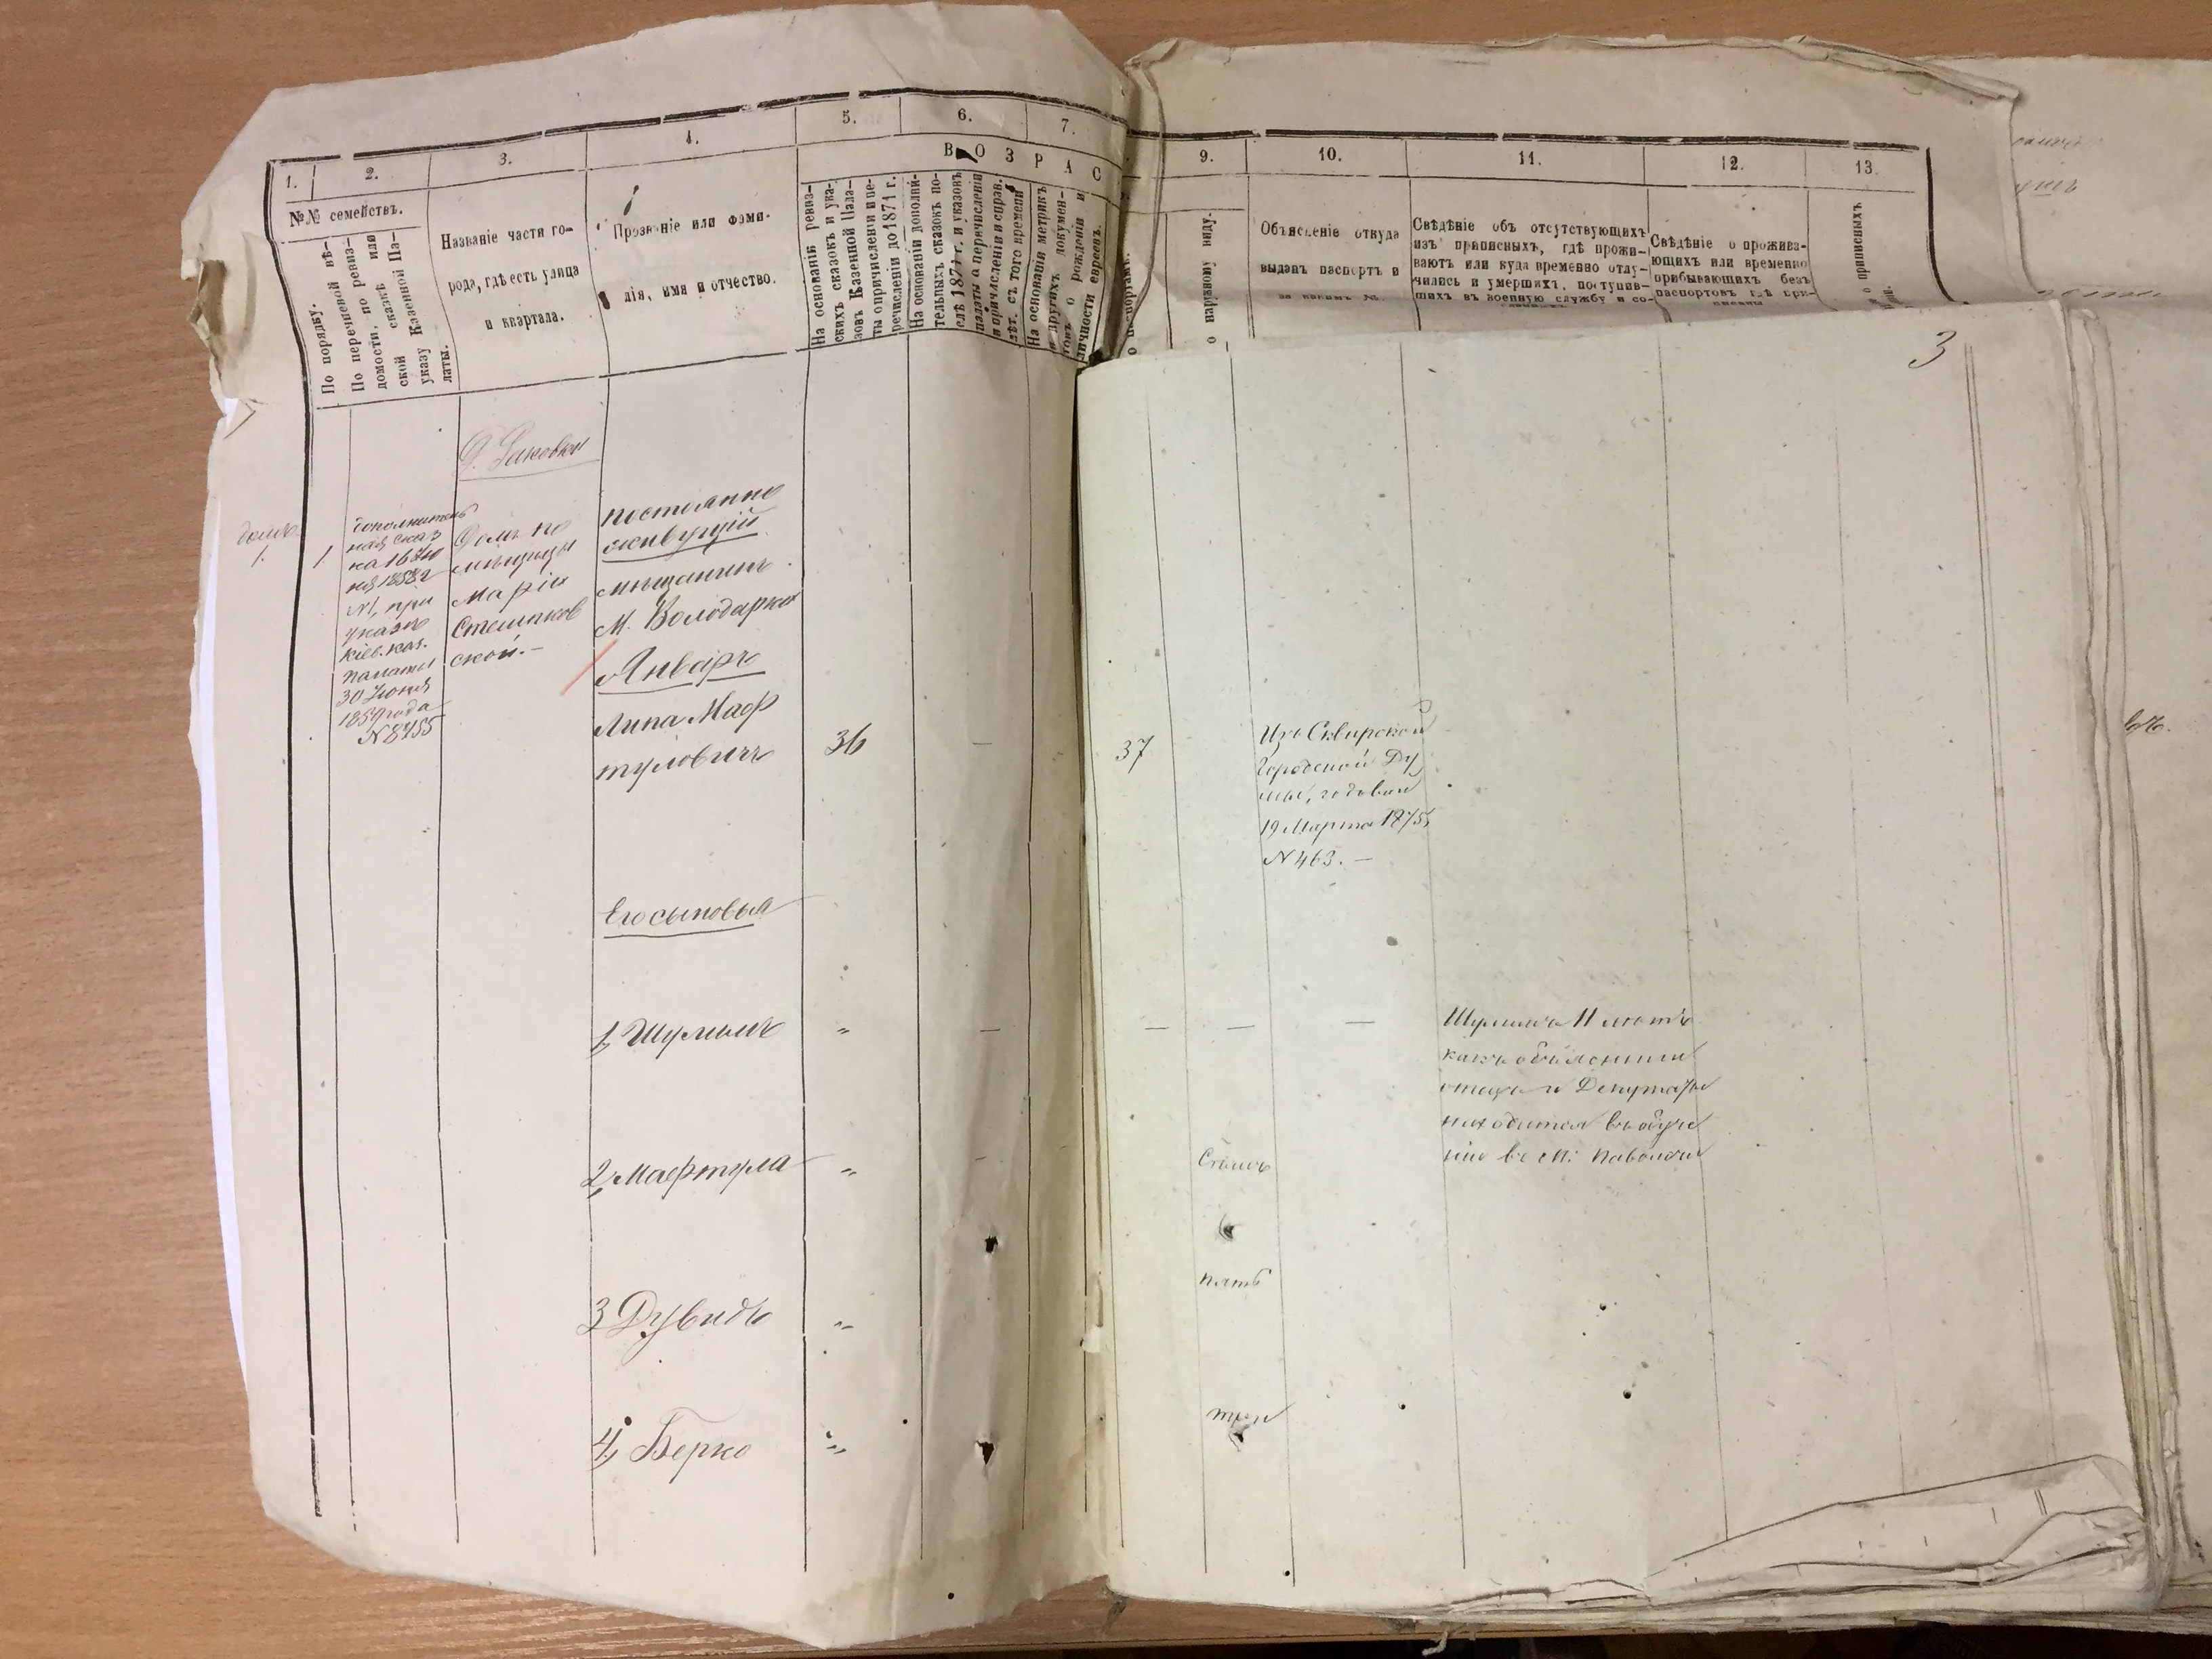 1.
2.
3.
4.
5.
6.
7.
9.
10.
11.
12.
13.
В О З Р А С
№№ семействъ.
По порядку.
По перечневой вѣ-
домости, по ревиз-
ской сказкѣ или
указу Казенной Па-
латы.
Названіе части го-
рода, гдѣ есть улица
и квартала.
Прозваніе или фами-
лія, имя и отчество.
На основаніи ревиз-
скихъ сказокъ и ука-
зовъ Казенной Пала-
ты о причисленіи и пе-
речисленіи до 1871 г.
На основаніи дополни-
тельныхъ сказокъ по-
слѣ 1871 г. и указовъ
палаты о перечисленіи
и причисленіи и справ.
лѣт. съ того времени
На основаніи метрикъ
и другихъ докумен-
товъ о рожденіи и
личности евреевъ.
о паспортамъ.
о наружному виду.
Объясненіе откуда
выданъ паспортъ и
за какимъ №.
Свѣдѣніе объ отсутствующихъ
изъ приписныхъ, гдѣ прожи-
ваютъ или куда временно отлу-
чились и умершихъ, поступив-
шихъ въ военную службу и со-
Свѣдѣніе о прожива-
ющихъ или временно
прибывающихъ безъ
паспортовъ гдѣ при-
писаны
о приписныхъ
3
домъ
1.
1.
дополнитель
ная сказ
ка 16 Iю
ня 1858 г
№1, при
указѣ
Кіев. каз.
палаты
30 Iюня
1859 года
№ 8755
Домъ №
мѣщанки
Маріи
Стешков
ской.-
постоянно
живущій
мѣщанинъ
м. Володарки
Анваръ
Липа Маф
туловичъ
36
37
Изъ Сквирской
Городской Ду
мы, годовой
19 Марта 1875
№ 463. —
Его сыновья
1, Шулимъ
„
Шулимъ 11 лѣтъ
какъ объяснили
отецъ и Депутаты
находится въ обуче
ніи въ м: Паволочи
2, Мафтула
„
Семь
3, Дувидъ
„
пять
4, Берко
„
три